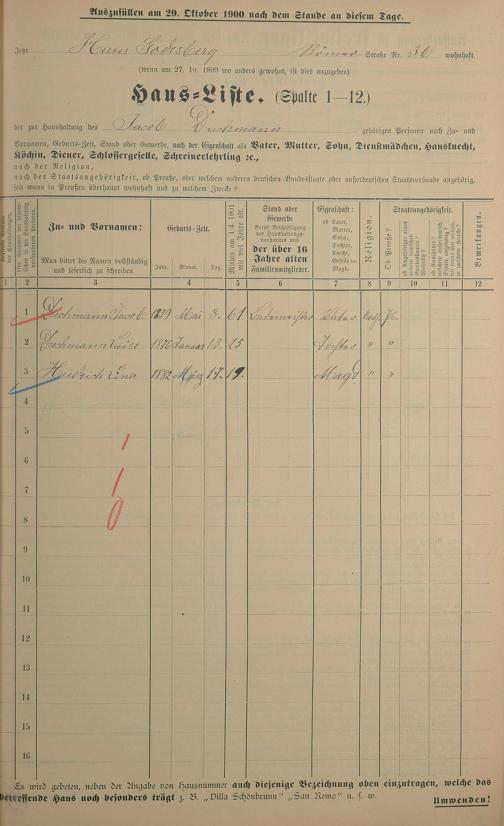 Auszufüllen am 29. Oktober 1900 nach dem Stande an diesem Tage.
Jetzt Haus Godesberg Römer Straße Nr. 36 wohnhaft.
(wenn am 27. 10. 1899 wo anders gewohnt, ist dies anzugeben)
Haus-Liste. (Spalte 1—12.)
der zur Haushaltung des Jacob gehörigen Personen nach Zu- und
Vornamen, Geburts-Zeit, Stand oder Gewerbe, nach der Eigenschaft als Vater, Mutter, Sohn, Dienstmädchen, Hausknecht,
Köchin, Diener, Schlossergeselle, Schreinerlehrling ꝛc.,
nach der Religion,
nach der Staatsangehörigkeit, ob Preuße, oder welchem anderen deutschen Bundesstaate oder außerdeutschen Staatsverbande angehörig,
seit wann in Preußen überhaupt wohnhaft und zu welchem Zwecke?
Zu- und Vornamen:
Man bittet die Namen vollständig
und leserlich zu schreiben.
Geburts-Zeit.
Jahr. Monat. Tag.
Mithin am 1/4 1901
wie viel Jahr alt.
Stand oder
Gewerbe
Beruf Beschäftigung
des Haushaltungs-
vorstandes und
der über 16
Jahre alten
Familienmitglieder.
Eigenschaft:
ob Vater,
Mutter,
Sohn,
Tochter,
Knecht,
Geselle o.
Magd.
Religion.
Staatsangehörigkeit.
Ob Preuße?
Bemerkungen.
1 2 3 4 5 6 7 8 9 10 11 12
1 Jacob 1839 Mai 8. 61 Lademeister Vater kath. Pr.
2 Luise 1876 Januar 13. 25 Tochter " "
3 Heidrich Lina 1882 März 17. 19. Magd " "
4
5
6
7
8
9
10
11
12
13
14
15
16
1
1
0
Es wird gebeten, neben der Angabe von Hausnummer auch diejenige Bezeichnung oben einzutragen, welche das
betreffende Haus noch besonders trägt z. B. „Villa Schönbrunn" „San Remo" u. s. w.
Umwenden!